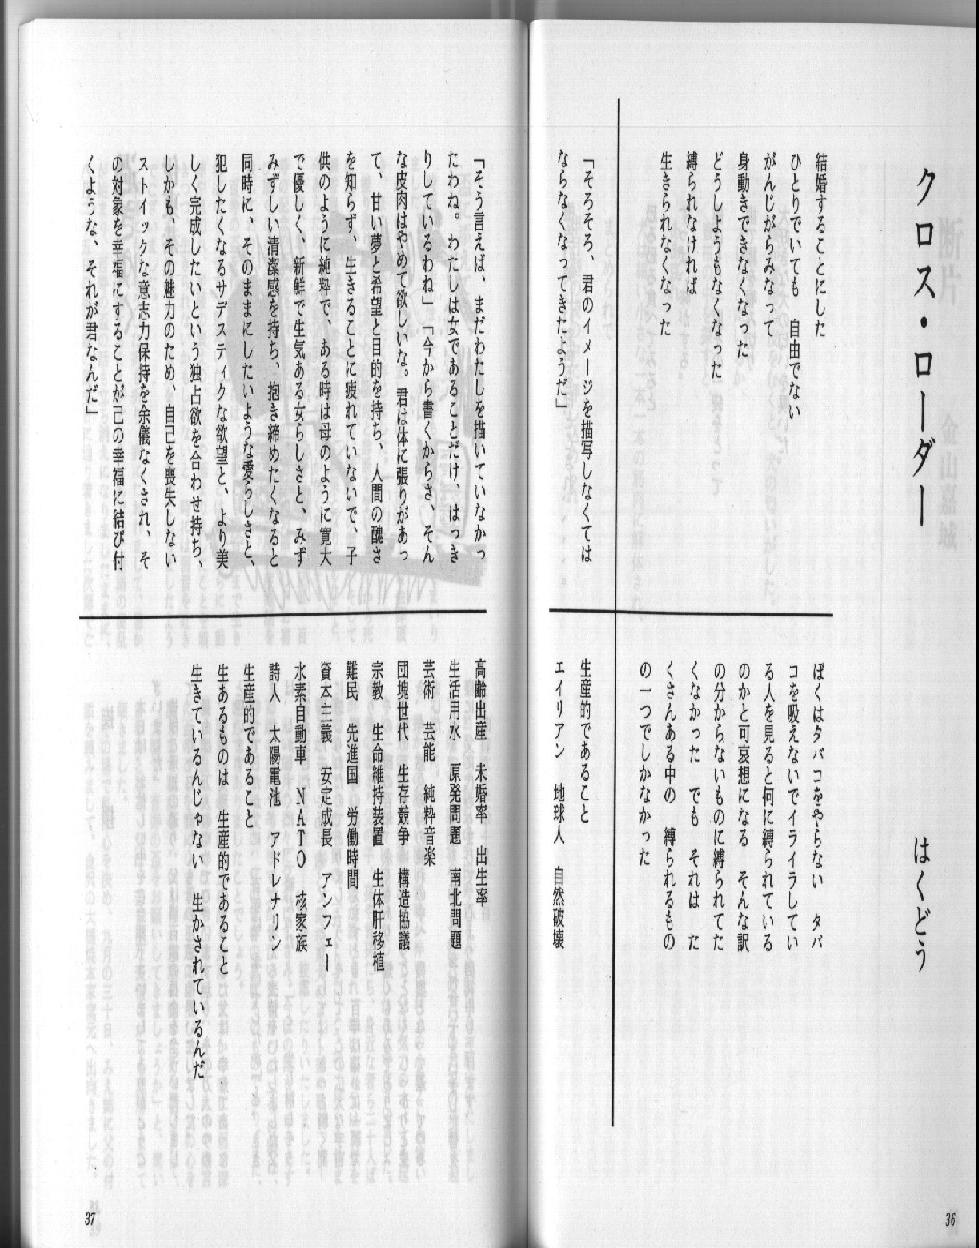 クロス・ローダー
はくどう
結婚することにした
ひとりでいても　自由でない
がんじがらみなって
身動きできなくなった
どうしようもなくなった
縛られなければ
生きられなくなった
ぼくはタバコをやらない　タバ
コを吸えないでイライラしてい
る人を見ると何に縛られている
のかと可哀想になる　そんな訳
の分からないものに縛られてた
くなかった　でも　それは　た
くさんある中の　縛られるもの
の一つでしかなかった
「そろそろ、君のイメージを描写しなくては
ならなくなってきたようだ」
生産的であること
エイリアン　地球人　自然破壊
36
「そう言えば、まだわたしを描いていなかっ
たわね。わたしは女であることだけ、はっき
りしているわね」「今から書くからさ、そん
な皮肉はやめて欲しいな。君は体に張りがあっ
て、甘い夢と希望と目的を持ち、人間の醜さ
を知らず、生きることに疲れていないで、子
供のように純粋で、ある時は母のように寛大
で優しく、新鮮で生気ある女らしさと、みず
みずしい清潔感を持ち、抱き締めたくなると
同時に、そのままにしたいような愛らしさと、
犯したくなるサデスティクな欲望と、より美
しく完成したいという独占欲を合わせ持ち、
しかも、その魅力のため、自己を喪失しない
ストイックな意志力保持を余儀なくされ、そ
の対象を幸福にすることが己の幸福に結び付
くような、それが君なんだ」
高齢出産　未婚率　出生率
生活用水　原発問題　南北問題
芸術　芸能　純粋音楽
団塊世代　生存競争　構造協議
宗教　生命維持装置　生体肝移植
難民　先進国　労働時間
資本主義　安定成長　アンフェー
水素自動車　NATO　核家族
詩人　太陽電池　アドレナリン
生産的であること
生あるものは　生産的であること
生きているんじゃない　生かされているんだ
37